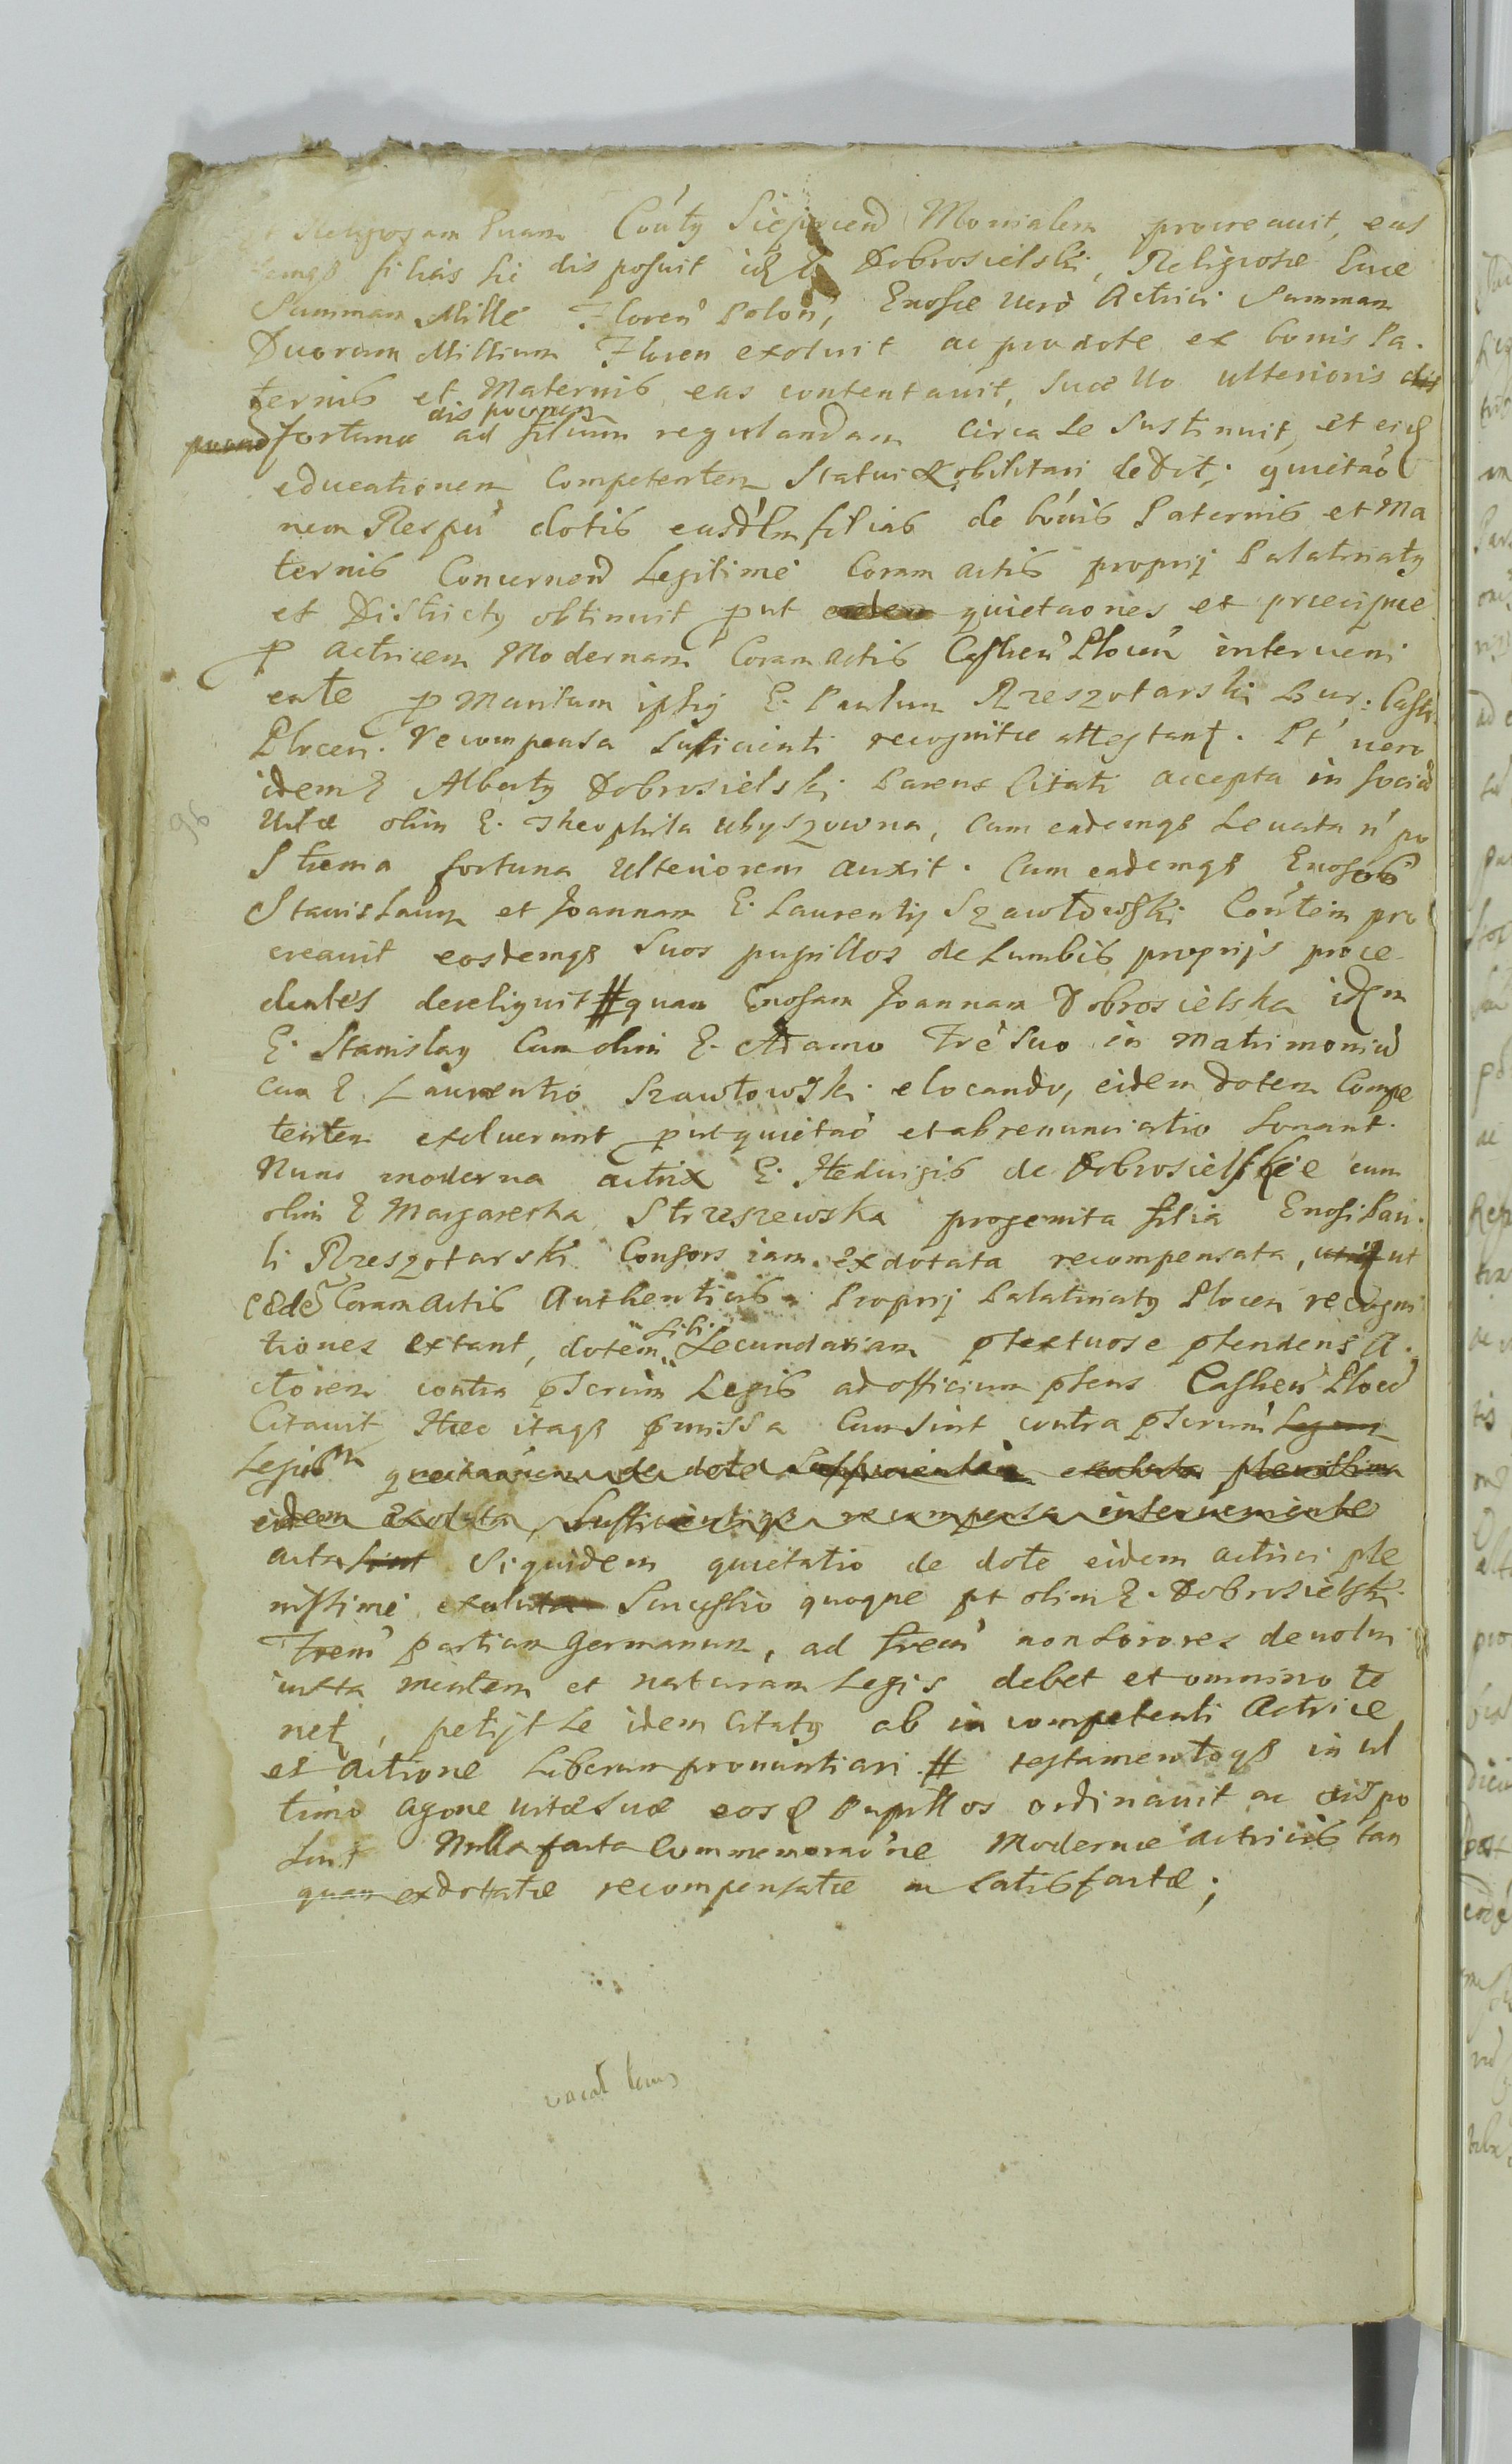 Religiosam Evam Con'tus Sieprcen Monialem procreavit, eas
demqs filias sic disposuit idem G. Dobrosielski, Religiosæ Evæ
Summam Mille Floren' Polon', Gnosæ verò Actrici Summam
Duorum Millium Floren exolvit ac pro dote ex bonis Pa-
ternis et Maternis eas contentavit, suæ vo ulterioris dis
fortunæ disponen ad filium regulandam circa se sustinuit, et eid
educationem Competentem Statui Nobilitari dedit; quietaõ
nem Respu' dotis easd'em filias de bonis Paternis et Ma
ternis Concernen Legitime Coram actis proprij Palatinatus
et Districtus obtinuit put eadem quietaones et præcipue
p actricem Modernam Coram actis Castren' Plocen' interveni
ente p Maritum ipsius G. Paulum Rzeszotarski Bur: Castr.
Plocen. recompensa sufficienti recognitæ attestant. Pt' vero
idem G Albertus Dobrosielski Parens Citati accepta in sociã
vitæ olim G. Theophila Ubyszowna, Cum eademqs levata n' po
strema fortuna ulteriorem auxit. Cum eademqs Gnosos
Stanislaum et Joannam G. Laurentij Szawłowski Con'tem pro
creavit eosdemqs suos pupillos de Lumbis proprijs proce-
dentes dereliquit # quam Gnosam Joannam Dobrosielska idem
G. Stanislaus Cum olim G. Adamo Fre' suo in Matrimoniũ
cum G. Laurentio Szawłowski elocando, eidem dotem Compe
tentem exolverunt put quietaõ et abrenunciatio sonant.
Nunc moderna actrix G. Hedvigis de Dobrosielskie cum
olim G Margaretha Strzeszewska progenita filia Gnosi Pau-
li Rzeszotarski Consors iam exdotata recompensata, uti ut
eædem Coram actis Authenticis Proprij Palatinatus Plocen recogni
tiones extant, dotem sibi Secundariam ptextuose ptendens A-
ctorem contra pscrium Legis ad officium pñs Castren' Ploceñ
Citavit Hæc itaqs pmissa Cum sint contra pscrium' Legem
Legis quietatiõnem de dote sufficientem exoluta plenissime
eidem exoluta, Sufficientiqs recompensa interveniente
acta sint Siquidem quietatio de dote eidem actrici ple
nissime exoluta Successio quoque pt olim G. Dobrosielski
Frem' partium Germanum, ad frem' non Sorores devolvi
iuxta mentem et naturam Legis debet et omnino te
net, petijt se idem Citatus ab incompetenti Actrice
et actione Liberum pronuntiari. # testamentoqs in ul
timo agone vitæ suæ eosd Pupillos ordinavit ac dispo
suit Nulla facta Commemora'ne Modernæ actricis tan
quam exdotatæ recompensatæ ac satisfactæ;
vacat locus
96